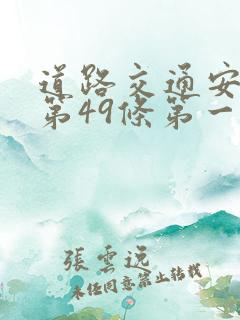 道路交通安
第49條第一
張雲逸
未經同意禁止轉載